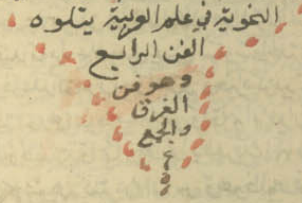 النحوية في علم العربية يتلوه
الفن الرابع
وهو فن
الفرق
والجمع